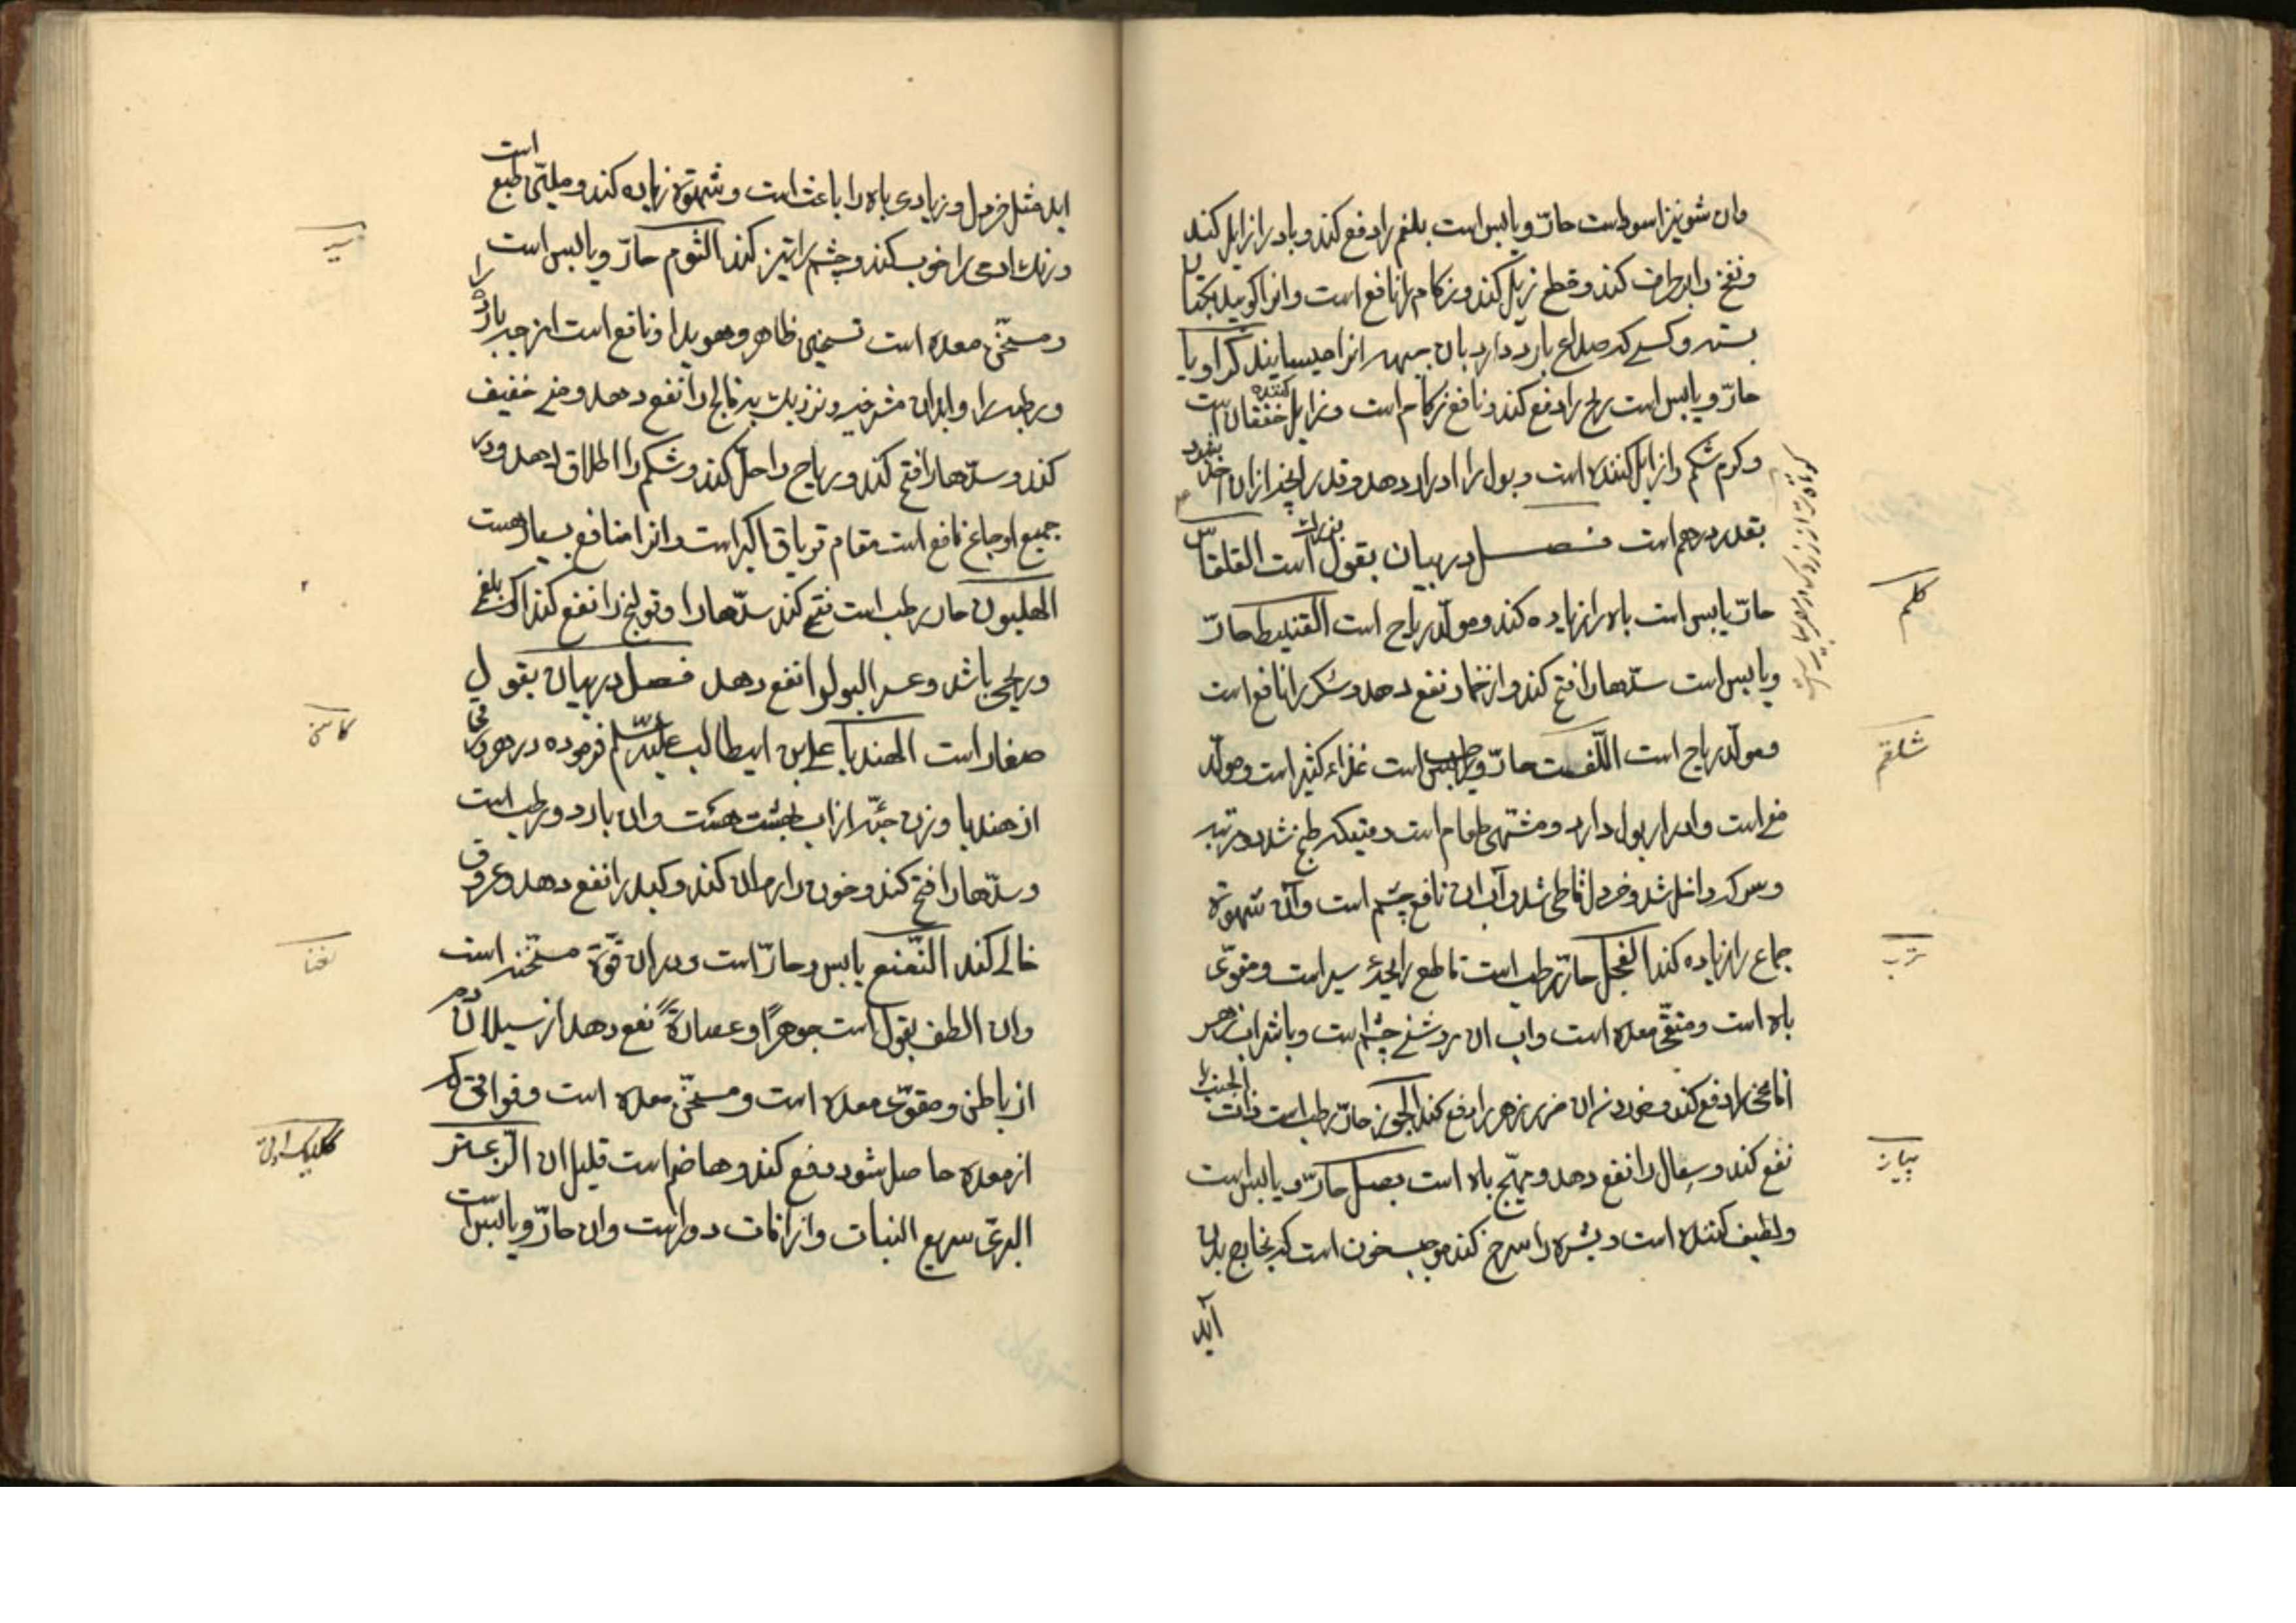 وان شونیز اسود است حارّ و یابس است بلغم را دفع کند و باد را زایل کند
و نفخ را بر طرف کند و قطع زبل کند و زکام را نافع است و انرا کوبیده بکتان
بسته و کسی که صداع بارد دارد بان جبهه انرا چسبانند کراویا
حارّ و یابس است ریح را دفع کند و نافع زکام است و زایل کننده خفقان است
و کرم شکم را زایل کننده است و بول را ادرار دهد و قدر انچه از ان اخذ بشود
بقدر درهم است فصل در بیان بقول بزرگ است القلقاس
حارّ یابس است باه را زیاده کند و مولّد ریاح است القنبیط حارّ
و یابس است سدّها را فتح کند و از خمار نفع دهد و سکر را نافع است
و مولّد ریاح است اللّفت حارّ و رطب است غذاء کثیر است و مولّد
منی است و ادرار بول دارد و مشتهی طعام است وقتیکه طبخ شد دو مرتبه
و سرکه داخل شد و خردل قاطی شد و آب ان نافع چشم است و آن شهوة
جماع را زیاده کند الفجل حارّ رطب است قاطع رایحهٔ سیر است و مقوّی
باه است و منقّی معده است و اب ان روشنی چشم است و با شراب زهر
افاعی را دفع کند و خوردن ان ضرر زهر را دفع کند الجزر حارّ رطب است ذات الجنب را
نفع کند و سعال را نفع دهد و مهیّج باه است بصل حارّ و یابس است
و لطیف کننده است و بشره را سرخ کند موجب خون است که بخارج بدن
آید
کلم
شلغم
ترب
پیاز
اید مثل خردل و زیادی باه را باعث است و شهوة زیاده کند و ملیّن طبع است
و رنک ادمی را خوب کند و چشم را تیز کند الثوم حارّ و یابس است
و مسخّن معده است تسخینی ظاهر و هویدا و نافع است از جهة بارد را
و رطب را و ابدان مشرخیه و نزدیک به فالج را نفع دهد و منی خفیف
کند و سدّها را فتح کند و ریاح را حلّ کند و شکم را اطلاق دهد و در
جمیع اوجاع نافع است مقام تریاق اکبر است و انرا منافع بسیار هست
الهلیون حار رطب است فتح کند سدّها را و قولنج را نفع کند اکر بلغمی
و ریحی باشد و عسر البول را نفع دهد فصل در بیان بقول
صغار است الهندبا علی بن ابیطالب علیه السّلم فرموده در هر ورقی
از هندبا وزن حبّه از اب بهشت هست و ان بارد و رطب است
و سدّها را فتح کند و خون را روان کند و کبد را نفع دهد و عروق
خالی کند النّعنع یابس و حارّ است و در ان قوّة مسخّنه است
وان الطف بقول است جوهراً و عصارةً نفع دهد از سیلان دم
از باطن و مقوّی معده است و مسخّن معده است و فواقی که
از معده حاصل شود دفع کند و هاضم است قلیل ان الزعتر
البرّی سریع النبات و از انات دواست وان حارّ و یابس است
سیر
کاسنی
نعنا